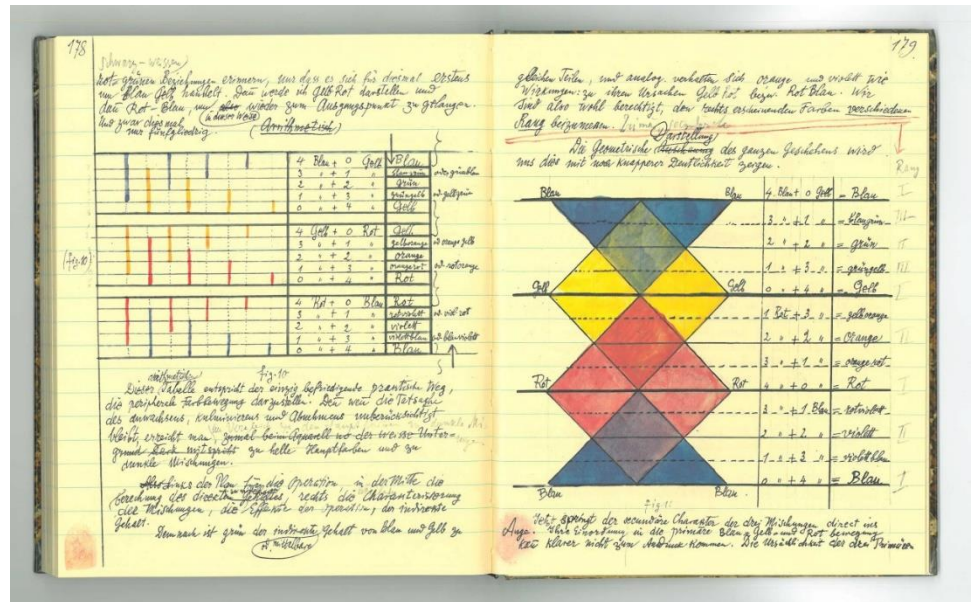 178
schwarz-weissen
Rot-grünen Beziehungen erinnern, nur dass es sich für diesmal erstens
um Blau Gelb handelt. Dann werde ich Gelb Rot darstellen und
dann Rot-Blau, um aber wieder zum Ausgangspunkt zu gelangen.
(in dieser Weise)
Und zwar diesmal
nur fünfgliedrig. (Arithmetisch)
4 Blau + 0 Gelb Blau
3 " + 1 " blaugrün od. grünblau
2 " + 2 " grün
1 " + 3 " grüngelb od. gelbgrün
0 " + 4 " Gelb
4 Gelb + 0 Rot Gelb
3 " + 1 " gelborange od. orangegelb
2 " + 2 " orange
(fig. 10)
1 " + 3 " orangerot od. rotorange
0 " + 4 " Rot
4 Rot + 0 Blau Rot
3 " + 1 " rotviolett od. viol rot
2 " + 2 " violett
1 " + 3 " violettblau od. blauviolett
0 " + 4 " Blau
fig. 10
arithmetische
Dieser Tabelle entspricht der einzig befriedigende practische Weg,
die peripherale Farbbewegung darzustellen. Denn wenn die Tatsache
des Anwachsens, Kulminierens und Abnehmens unberücksichtigt
bleibt, erreicht man, zumal beim Aquarell wo der weisse Unter-
grund stark mitspricht zu helle Hauptfarben und zu
dunkle Mischungen.
Links der Plan für die Operation, in der Mitte die
Berechnung des directen Gehaltes, rechts die Charakterisierung
der Mischungen, die Effektur der Operation, der indirecte
Gehalt.
Demnach ist grün der indirecte Gehalt von Blau und Gelb zu
179
gleichen Teilen, und analog verhalten sich orange und violett wie
Wirkungen zu ihren Ursachen Gelb Rot bezw. Rot Blau. Wir
sind also wohl berechtigt, den rechts erscheinenden Farben verschiedenen
Rang beizumessen.
Darstellung
Die Geometrische des ganzen Geschehens wird
uns dies mit noch knapperer Deutlichkeit zeigen.
Rang
Blau Blau 4 Blau + 0 Gelb = Blau I
3 " + 1 " = blaugrün III
2 " + 2 " = grün II
1 " + 3 " = grüngelb III
Gelb Gelb 0 " + 4 " = Gelb I
1 Rot + 3 " = gelborange
2 " + 2 " = Orange II
3 " + 1 " = orangerot
Rot Rot 4 " + 0 " = Rot I
3 " + 1 Blau = rotviolet
2 " + 2 " = violett II
1 " + 3 " = violettblau
0 " + 4 " = Blau I
Blau Blau
fig. 11
Jetzt springt der secundäre Charakter der drei Mischungen direct ins
Auge. Ihre Einordnung in die primäre Blau-Gelb- und Rot bewegung
kann klarer nicht zum Ausdruck kommen. Die Ursächlichkeit des drei Primären